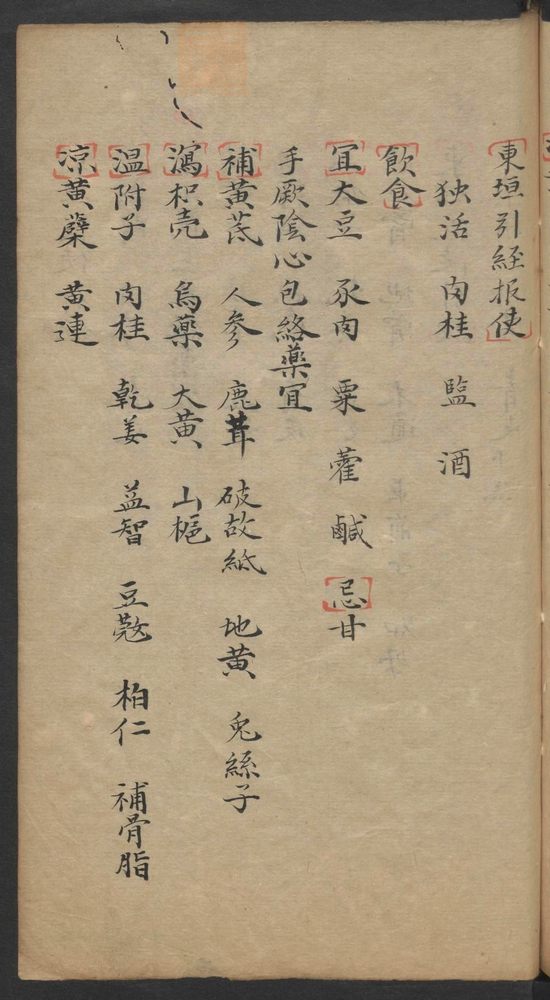 東垣引経報使
独活 肉桂 監 酒
飲食
宜大豆 豕肉 粟 藿 鹹 忌甘
手厥陰心包絡薬宜
補黄芪 人参 鹿茸 破故紙 地黄 兎絲子
瀉枳壳 烏藥 大黄 山梔
温附子 肉桂 乾姜 益智 豆蔲 柏仁 補骨脂
凉黄蘗 黄連